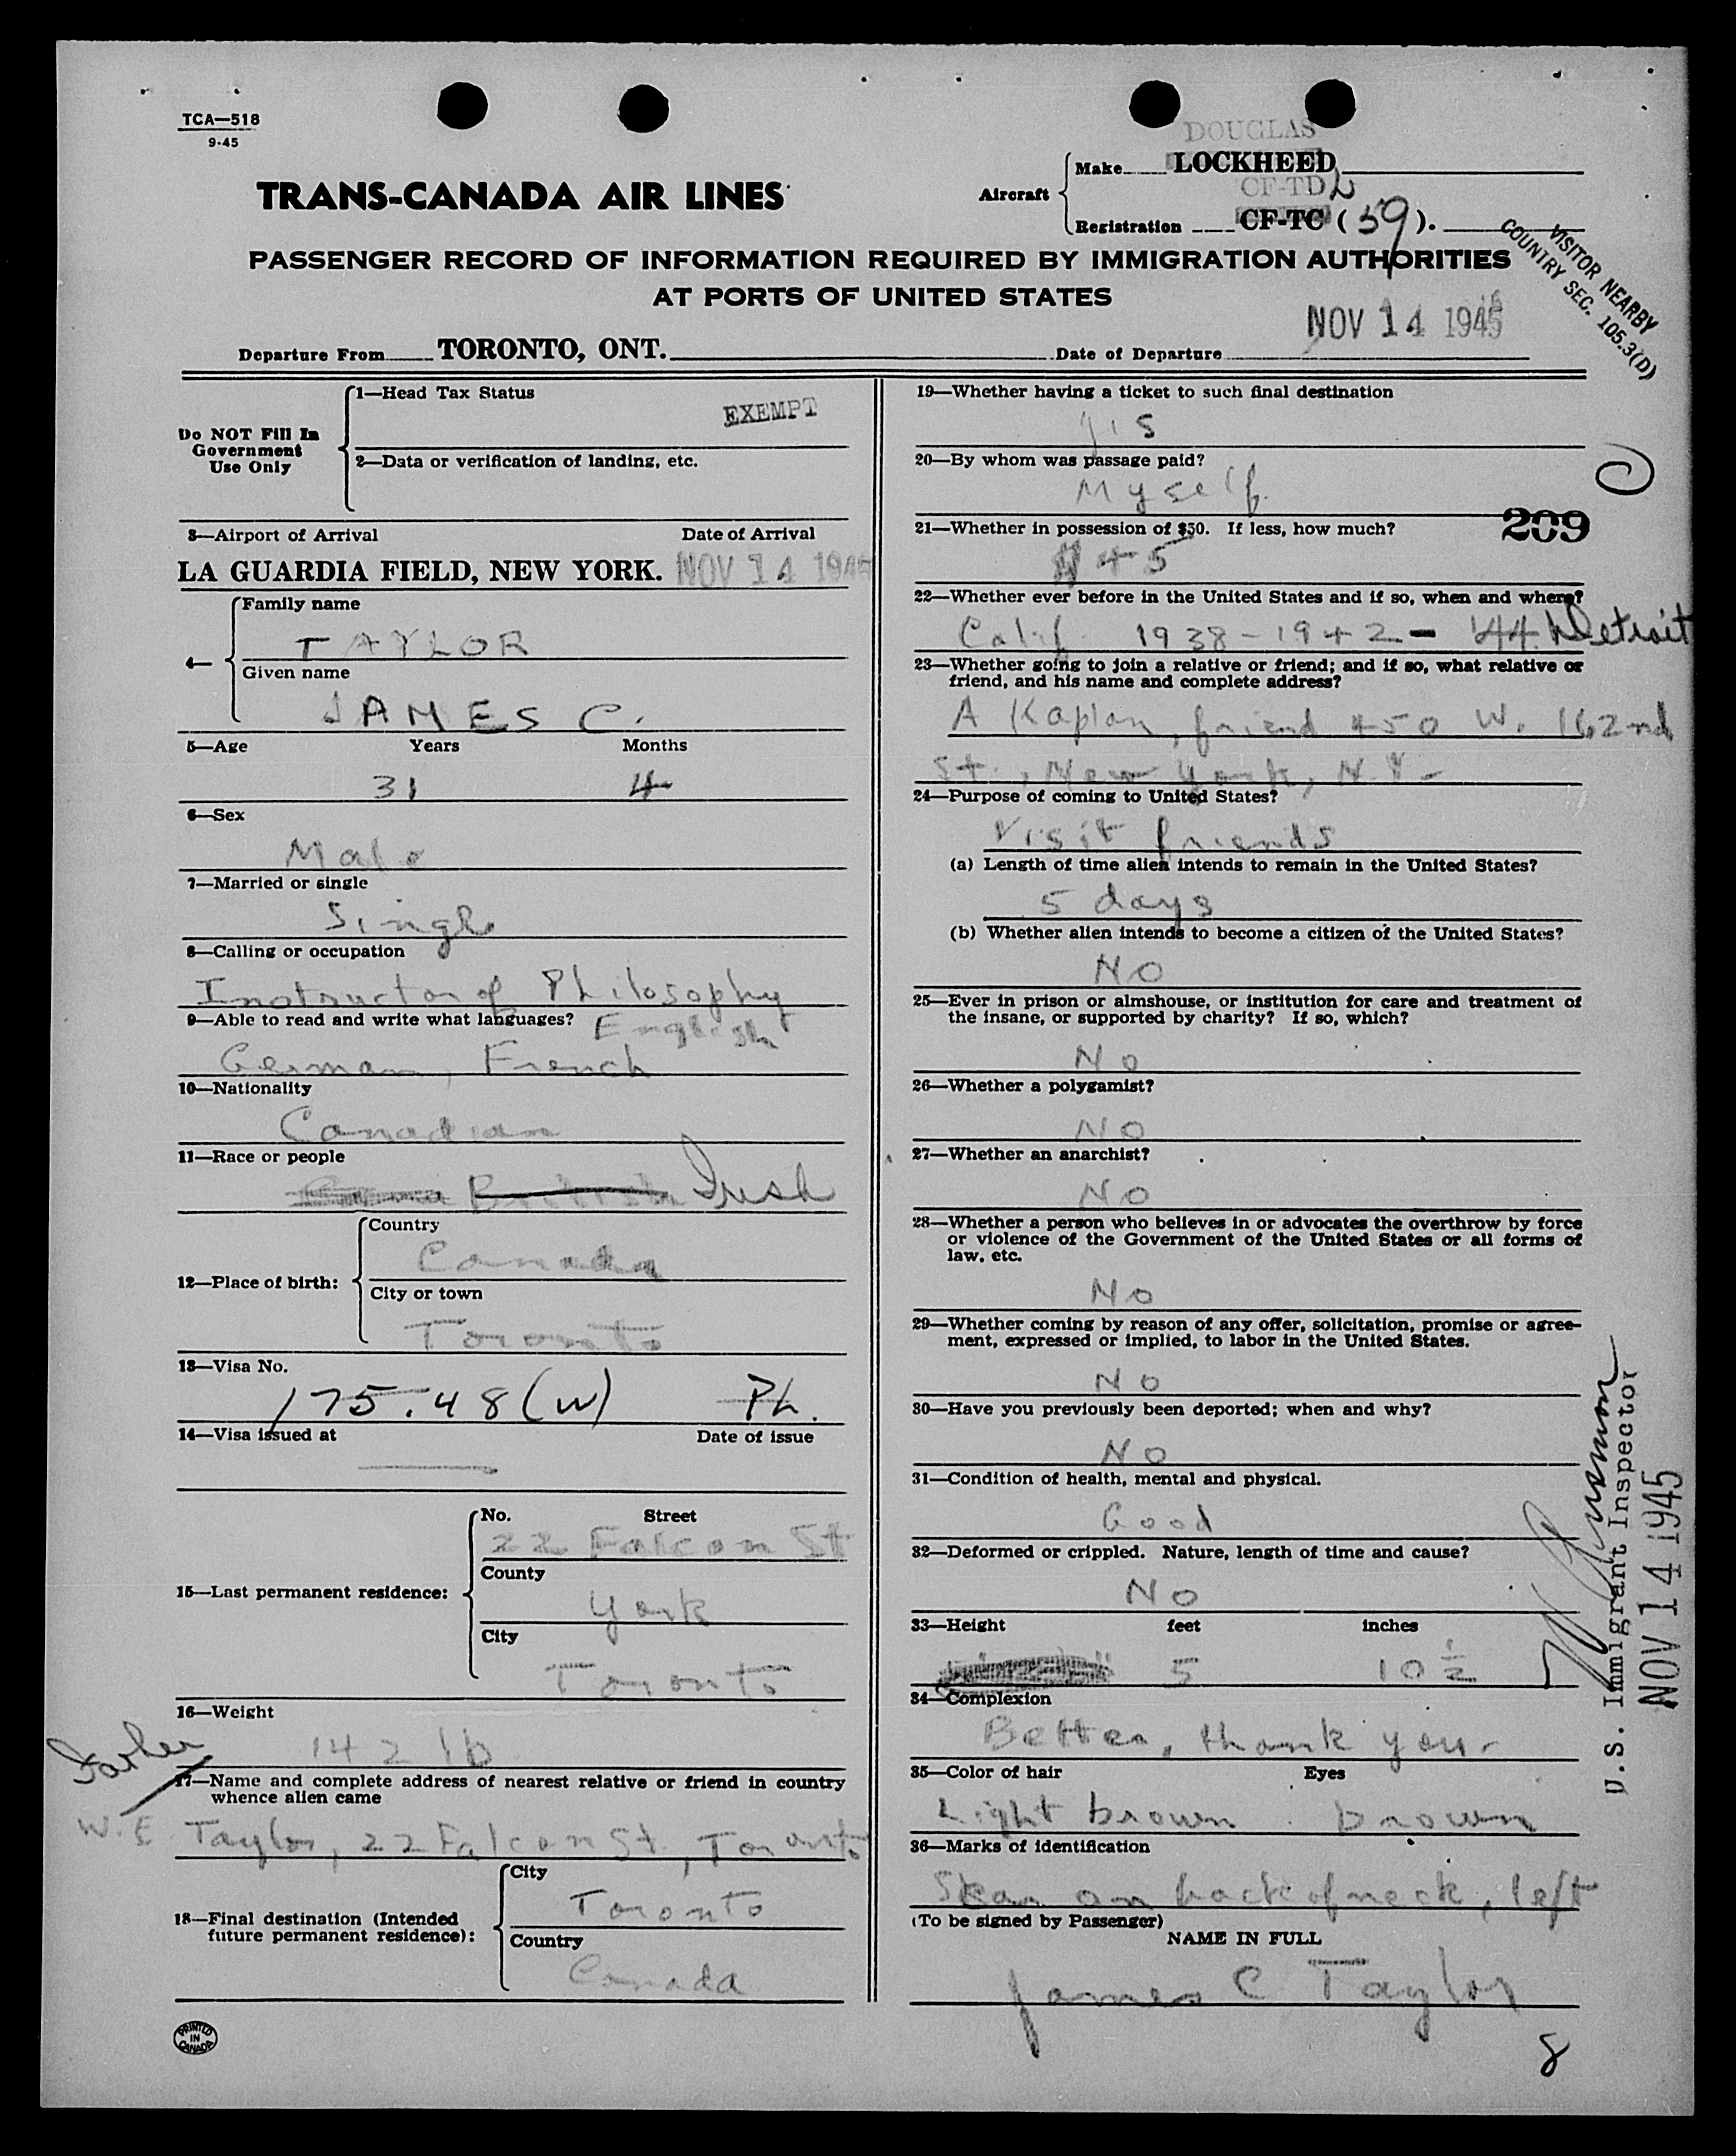 TCA—518
9-45
DOUGLAS
Make LOCKHEED
Aircraft
CF-TD L
Registration CF-TC (59).
TRANS-CANADA AIR LINES
PASSENGER RECORD OF INFORMATION REQUIRED BY IMMIGRATION AUTHORITIES
AT PORTS OF UNITED STATES
VISITOR NEARBY
COUNTRY SEC. 105.3(D)
Departure From TORONTO, ONT. Date of Departure NOV 14 1945
Do NOT Fill In
Government
Use Only
1—Head Tax Status
EXEMPT
2—Data or verification of landing, etc.
3—Airport of Arrival Date of Arrival
LA GUARDIA FIELD, NEW YORK. NOV 14 1945
4—
Family name
TAYLOR
Given name
JAMES C.
5—Age Years Months
31 4
6—Sex
Male
7—Married or single
Single
8—Calling or occupation
Instructor of Philosophy
9—Able to read and write what languages? English
German, French
10—Nationality
Canadian
11—Race or people
British Irish
12—Place of birth:
Country
Canada
City or town
Toronto
13—Visa No.
175.48(W) Ph.
14—Visa issued at Date of issue
15—Last permanent residence:
No. Street
22 Falcon St
County
York
City
Toronto
16—Weight
142 lb
Father
17—Name and complete address of nearest relative or friend in country
whence alien came
W.E. Taylor, 22 Falcon St., Toronto
18—Final destination (Intended
future permanent residence):
City
Toronto
Country
Canada
PRINTED
IN
CANADA
19—Whether having a ticket to such final destination
yis
20—By whom was passage paid?
Myself.
C
21—Whether in possession of $50. If less, how much?
209
$45
22—Whether ever before in the United States and if so, when and where?
Calif. 1938-1942 - '44. Detroit
23—Whether going to join a relative or friend; and if so, what relative or
friend, and his name and complete address?
A Kaplan, friend 450 W. 162nd
St., New York, N.Y-
24—Purpose of coming to United States?
Visit friends
(a) Length of time alien intends to remain in the United States?
5 days
(b) Whether alien intends to become a citizen of the United States?
NO
25—Ever in prison or almshouse, or institution for care and treatment of
the insane, or supported by charity? If so, which?
No
26—Whether a polygamist?
NO
27—Whether an anarchist?
NO
28—Whether a person who believes in or advocates the overthrow by force
or violence of the Government of the United States or all forms of
law, etc.
No
29—Whether coming by reason of any offer, solicitation, promise or agree-
ment, expressed or implied, to labor in the United States.
No
30—Have you previously been deported; when and why?
No
31—Condition of health, mental and physical.
Good
32—Deformed or crippled. Nature, length of time and cause?
No
33—Height feet inches
5 10 ½
34—Complexion
Better, thank you-
35—Color of hair Eyes
Light brown brown
36—Marks of identification
Skar on back of neck, left
(To be signed by Passenger)
NAME IN FULL
James C Taylor
8
U.S. Immigrant Inspector
NOV 14 1945